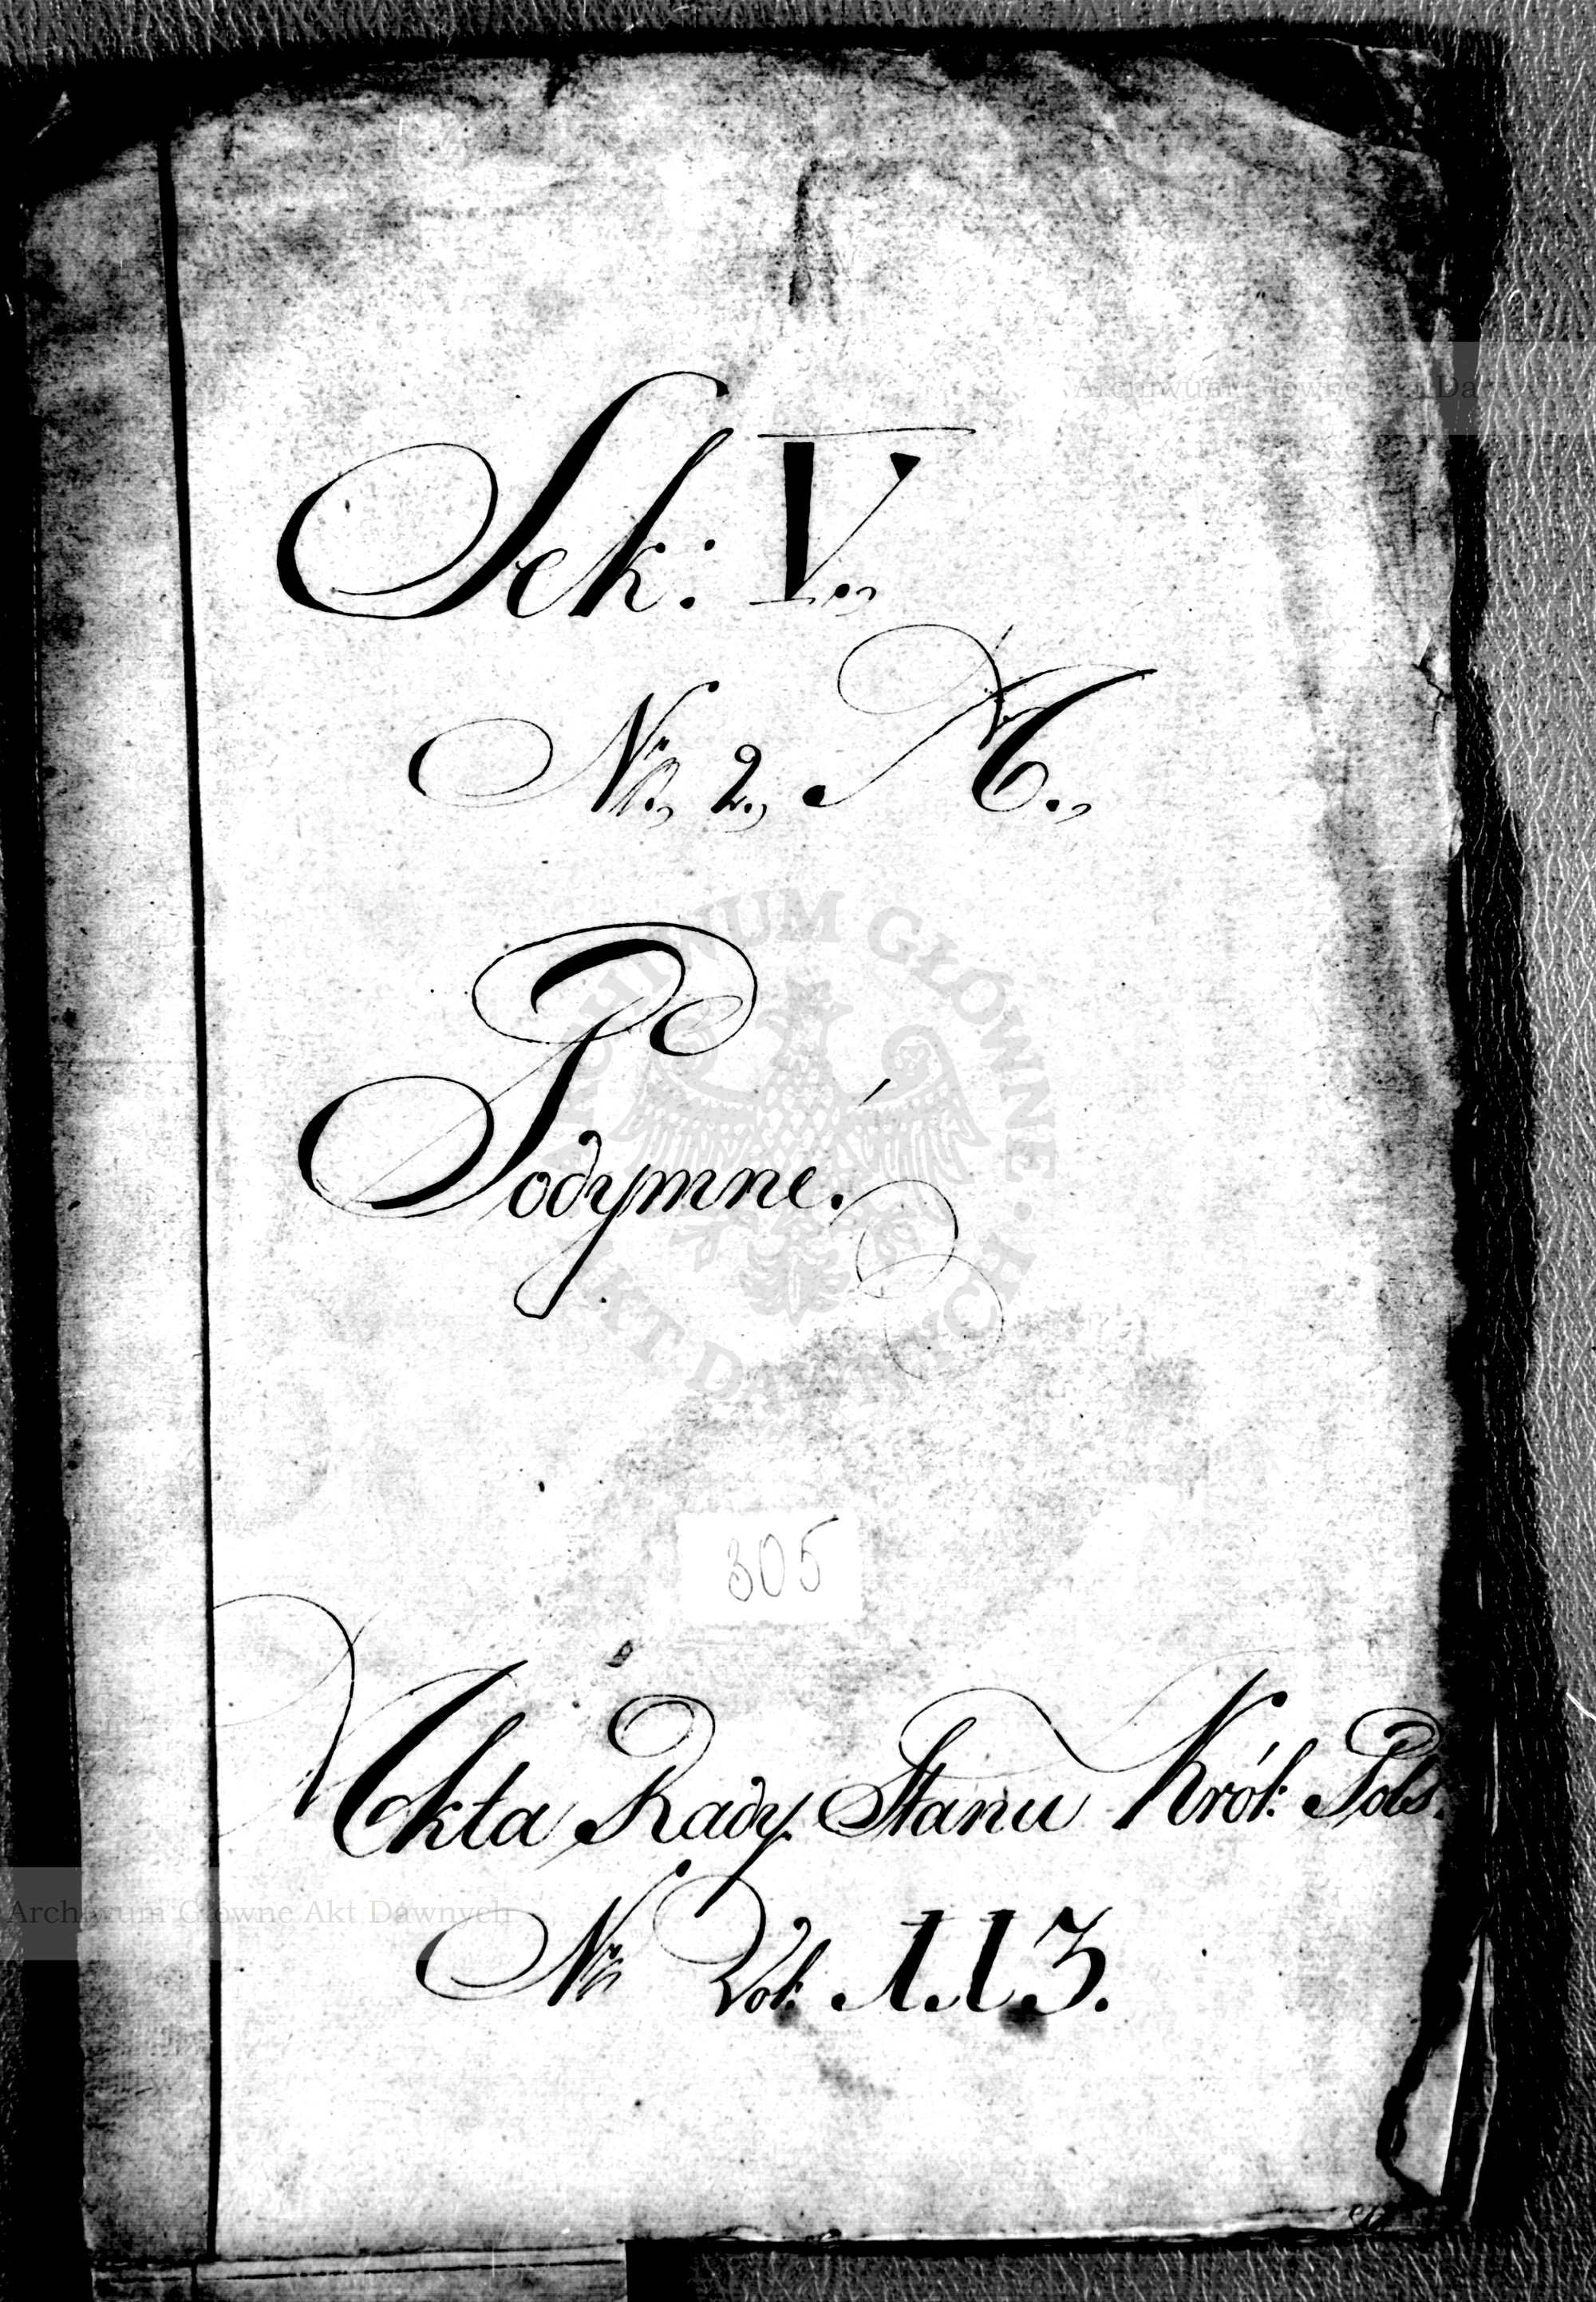 Sek: V.,
Nr., 2., A.,
Podymné.
305
Akta Rady Stanu Król: Pols.
Nr Vol: 113.
Archiwum Główne Akt Dawnych
ARCHIWUM GŁÓWNE AKT DAWNYCH
Archiwum Główne Akt Dawnych